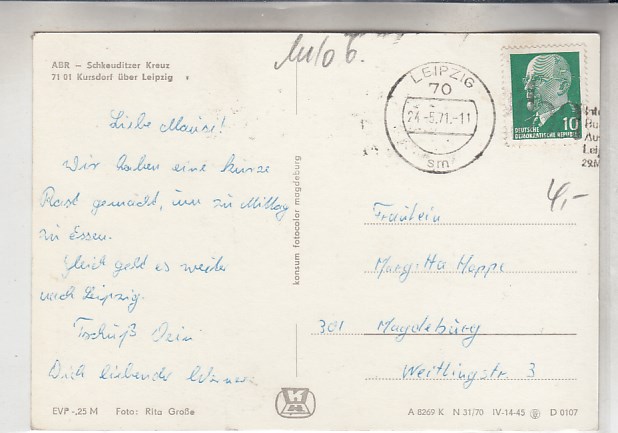 ABR – Schkeuditzer Kreuz
71 01 Kursdorf über Leipzig
Liebe Mausi!
Wir haben eine kurze
Rast gemacht, um zu Mittag
zu Essen.
Gleich geht es weiter
nach Leipzig.
Tschüß Dein
Dich liebender
EVP -,25 M Foto: Rita Große
konsum fotocolor magdeburg
LEIPZIG
70
24.-5.71.-11
sm
10
DEUTSCHE
DEMOKRATISCHE REPUBLIK
4,-
Fräulein
Margitta Hoppe
301 Magdeburg
Weitlingstr. 3
A 8269 K N 31/70 IV-14-45 D 0107